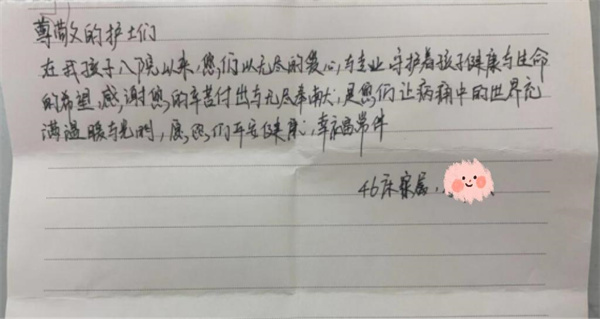 尊敬的护士们
在我孩子入院以来,您们以无尽的爱心,与专业守护着孩子健康与生命
的希望,感谢您的辛苦付出与无尽奉献,是您们让病痛中的世界充
满温暖与光明,愿,您们平安健康,幸福常伴
46床家属.